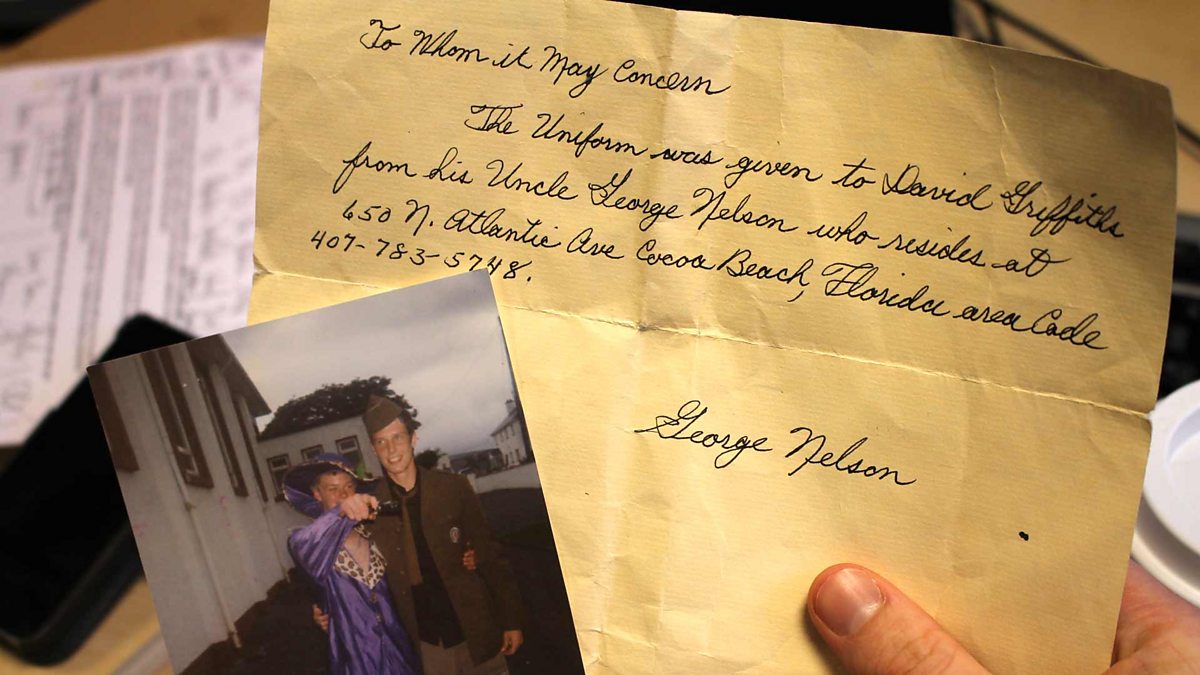 To Whom it May Concern
The Uniform was given to David Griffiths
from his Uncle George Nelson who resides at
650 N. Atlantic Ave Cocoa Beach, Florida area Code
407-783-5748.
George Nelson